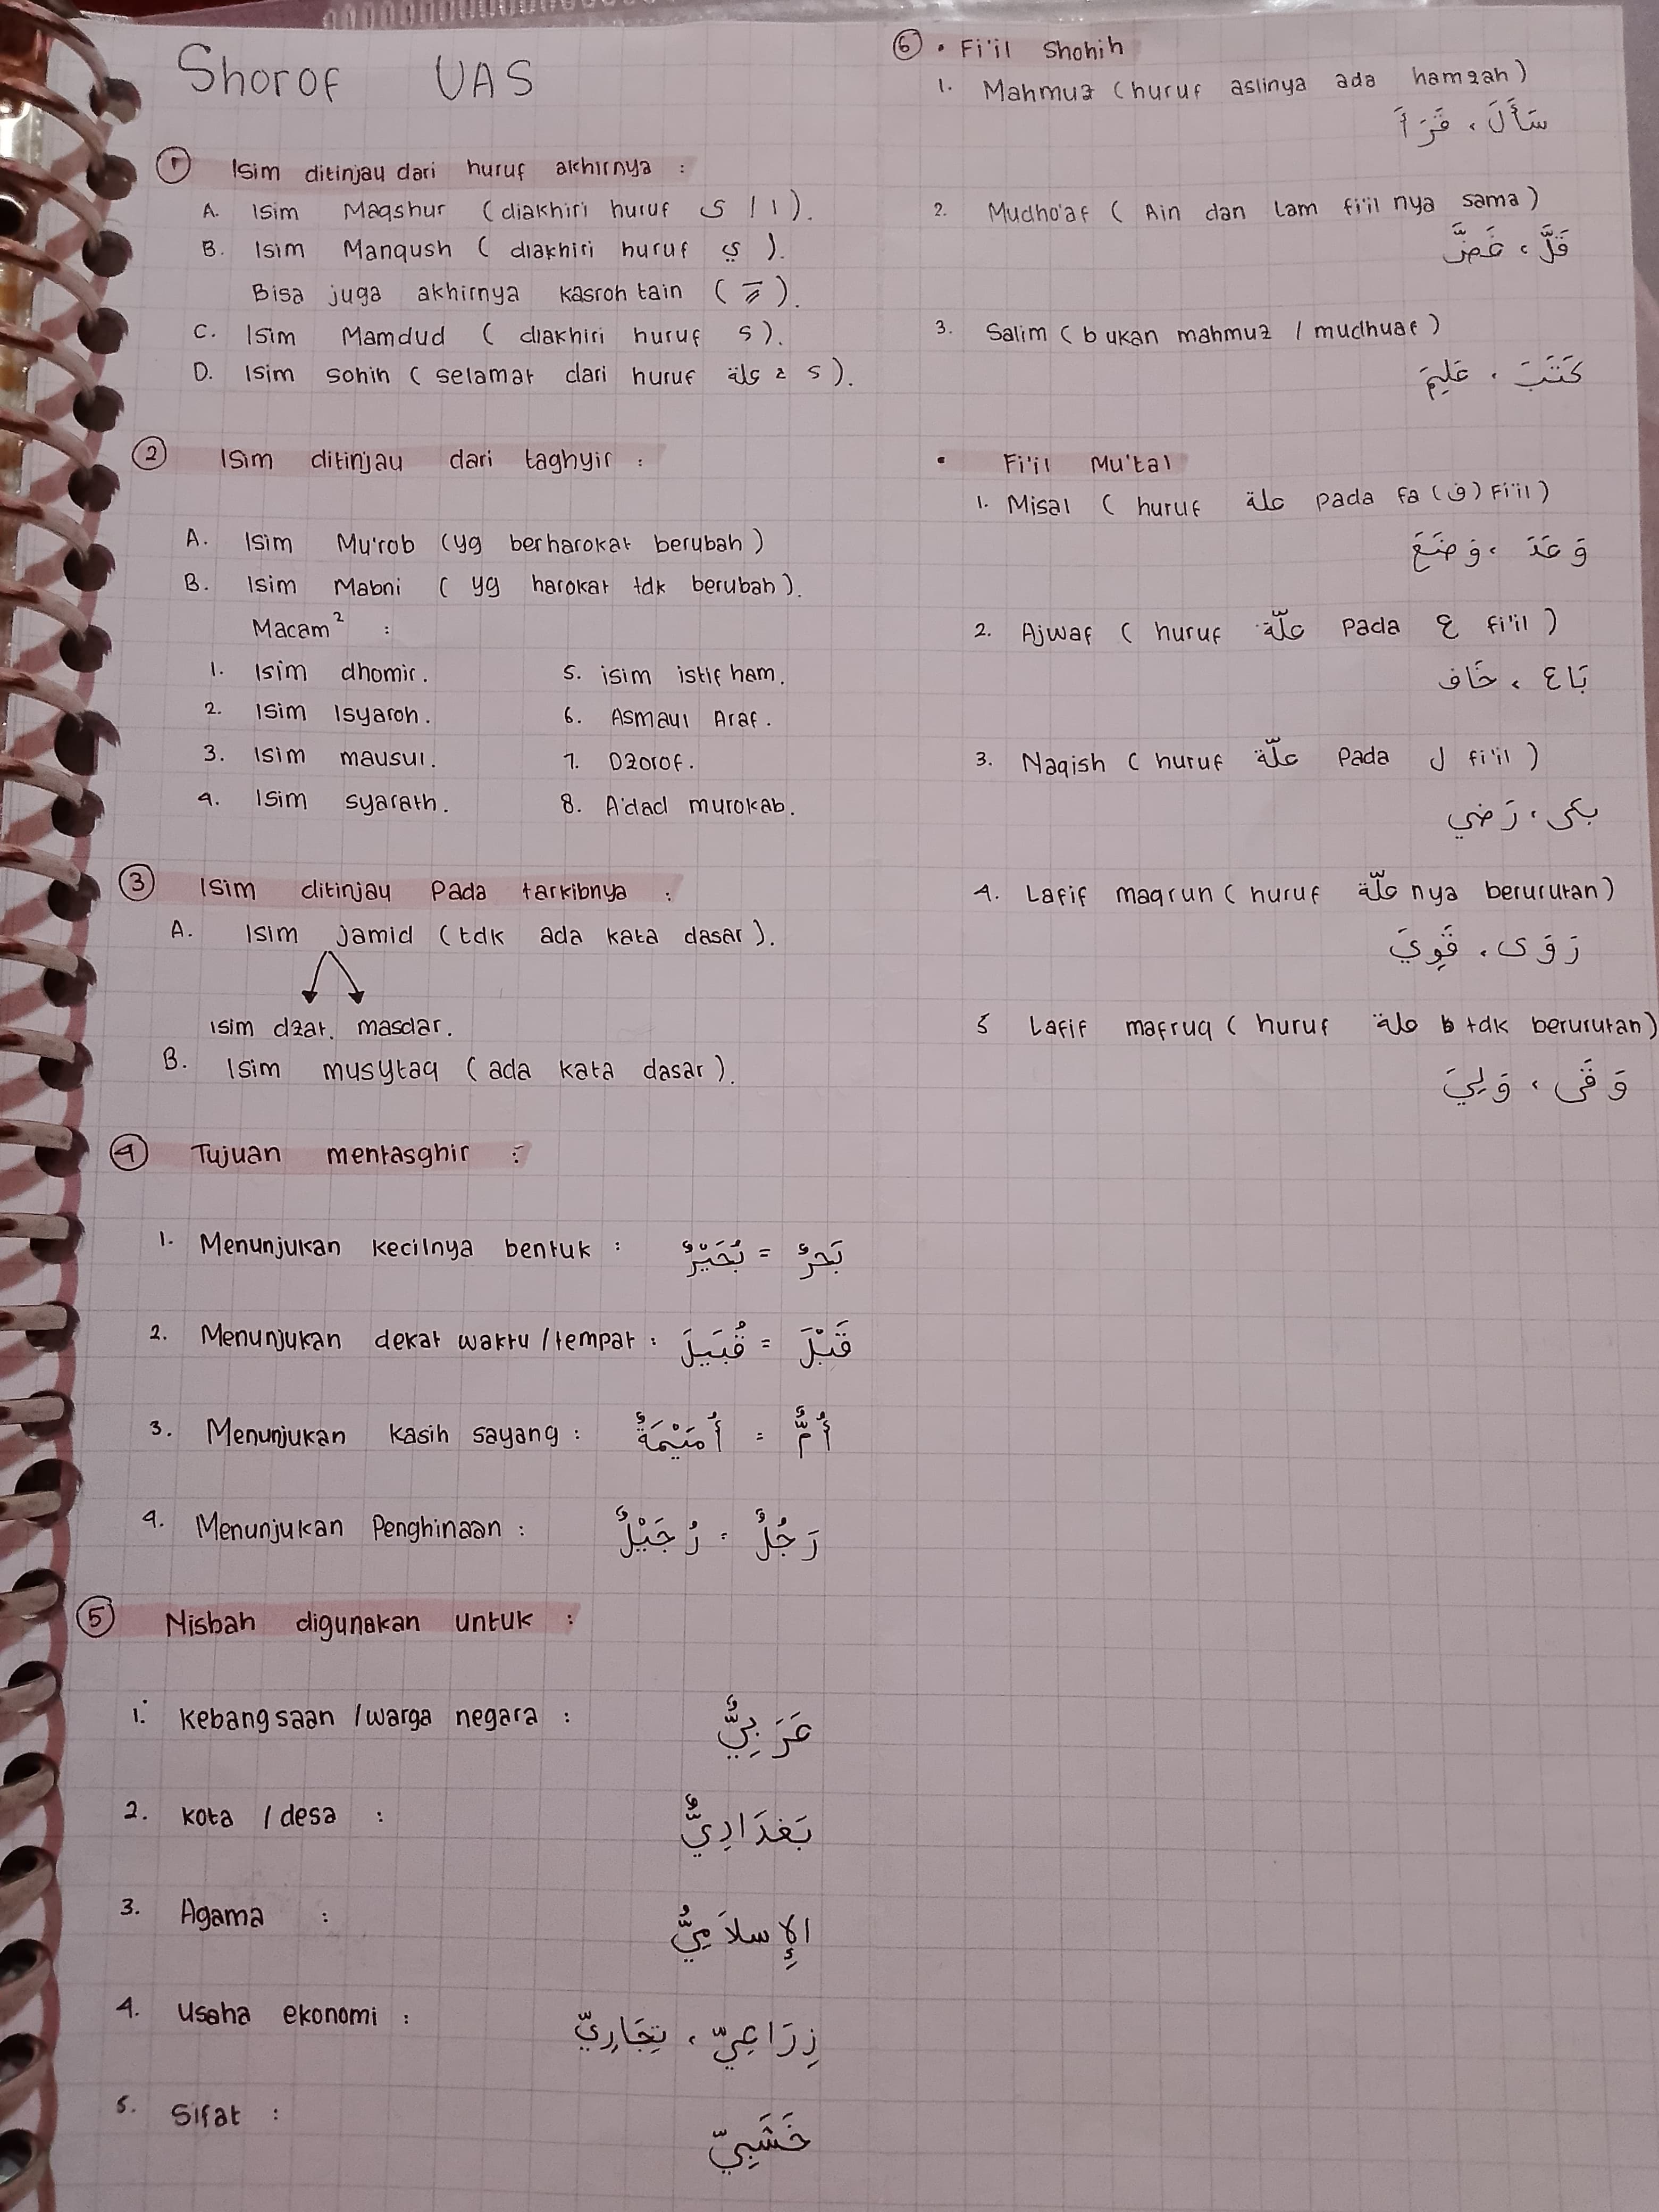 Shorof UAS
① Isim ditinjau dari huruf akhirnya :
A. Isim Maqshur (diakhiri huruf ى / ا).
B. Isim Manqush (diakhiri huruf ي).
Bisa juga akhirnya kasroh tain ( ٍ ).
C. Isim Mamdud (diakhiri huruf ء).
D. Isim sohih (selamat dari huruf علة & ء).
② Isim ditinjau dari taghyir :
A. Isim Mu'rob (yg berharokat berubah)
B. Isim Mabni (yg harokat tdk berubah).
Macam² :
1. Isim dhomir.
2. Isim Isyaroh.
3. Isim mausul.
4. Isim syarath.
5. isim istifham.
6. Asmaul Araf.
7. Dzorof.
8. A'dad murokab.
③ Isim ditinjau Pada tarkibnya :
A. Isim jamid (tdk ada kata dasar).
isim dzat. masdar.
B. Isim musytaq (ada kata dasar).
④ Tujuan mentasghir :
1. Menunjukan kecilnya bentuk : بَحرٌ = بُحَيْرٌ
2. Menunjukan dekat waktu/tempat : قَبْلَ = قُبَيلَ
3. Menunjukan kasih sayang : أُمٌّ = أُمَيْمَةٌ
4. Menunjukan Penghinaan : رَجُلٌ = رُجَيْلٌ
⑤ Nisbah digunakan untuk :
1. Kebangsaan /warga negara : عَرَبِيٌّ
2. Kota / desa : بَغدَادِيٌّ
3. Agama : الإِسلاَمِيُّ
4. Usaha ekonomi : زِرَاعِيّ ، تِجَارِيّ
5. Sifat : خَشَبِيّ
⑥ • Fi'il Shohih
1. Mahmuz (huruf aslinya ada hamzah)
سَأَلَ ، قَرَأَ
2. Mudho'af (Ain dan lam fi'il nya sama)
قَلَّ ، غَضَّ
3. Salim (bukan mahmuz / mudhuaf)
كَتَبَ ، عَلِيمَ
• Fi'il Mu'tal
1. Misal (huruf علة pada fa (ف) Fi'il)
وَعَدَ ، وَضَعَ
2. Ajwaf (huruf علّة pada ع fi'il)
بَاع ، خَاف
3. Naqish (huruf علّة Pada ل fi'il)
بكى ، رَضي
4. Lafif maqrun (huruf علّة nya berurutan)
رَوَى ، قَوِيَ
5 Lafif mafruq (huruf علة tdk berurutan)
وَقَى ، وَلِيَ